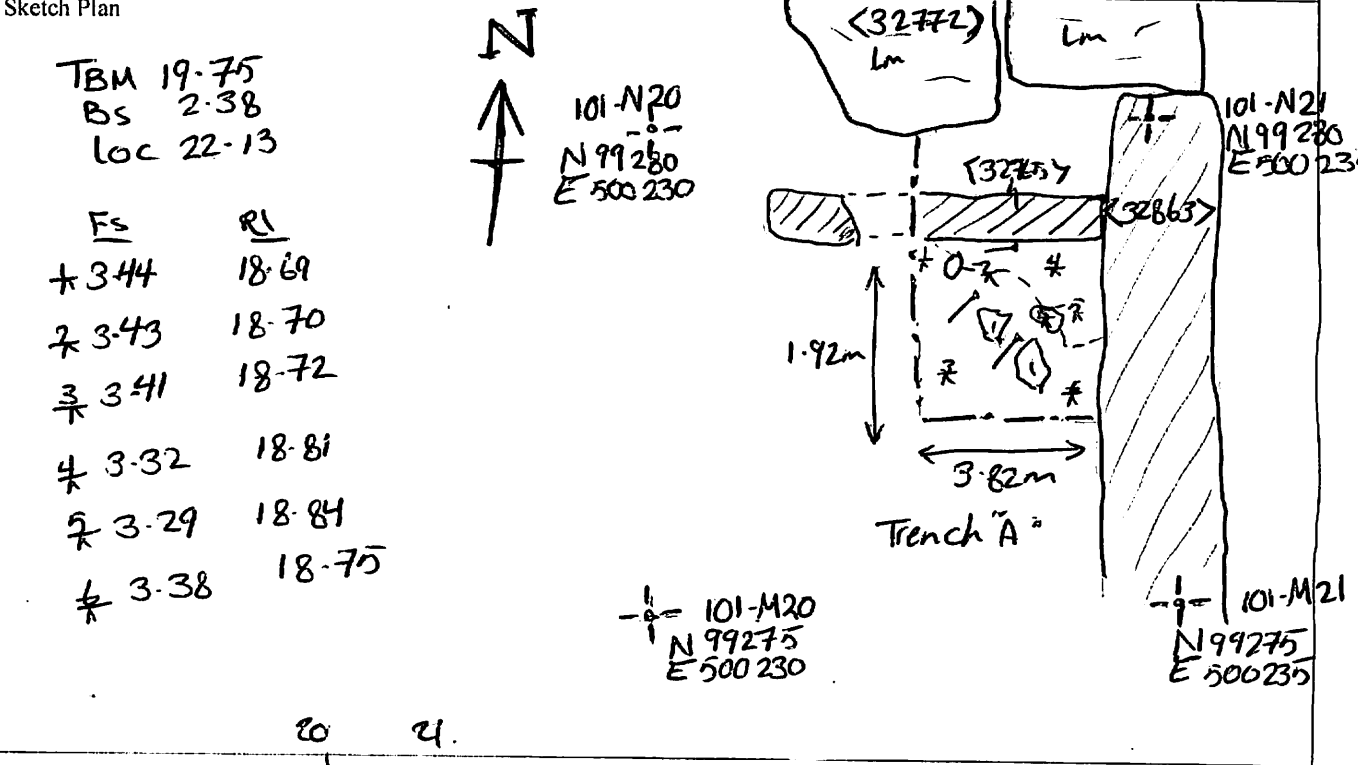 Sketch Plan
TBM 19.75
BS 2.38
loc 22.13
FS Rl
1 3.44 18.69
2 3.43 18.70
3 3.41 18.72
4 3.32 18.81
5 3.29 18.84
6 3.38 18.75
N
101-N20
N 99280
E 500230
<32772>
Lm
Lm
101-N21
N 99280
E 50023
<32863>
1
2
4
5
3
6
1.92m
3.82m
Trench "A"
101-M20
N 99275
E 500230
101-M21
N 99275
E 500235
20 21.